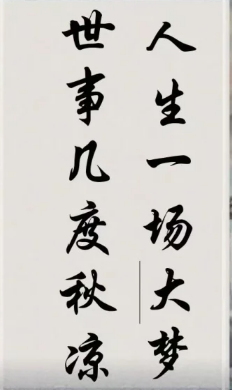 人生一场大梦
世事几度秋凉